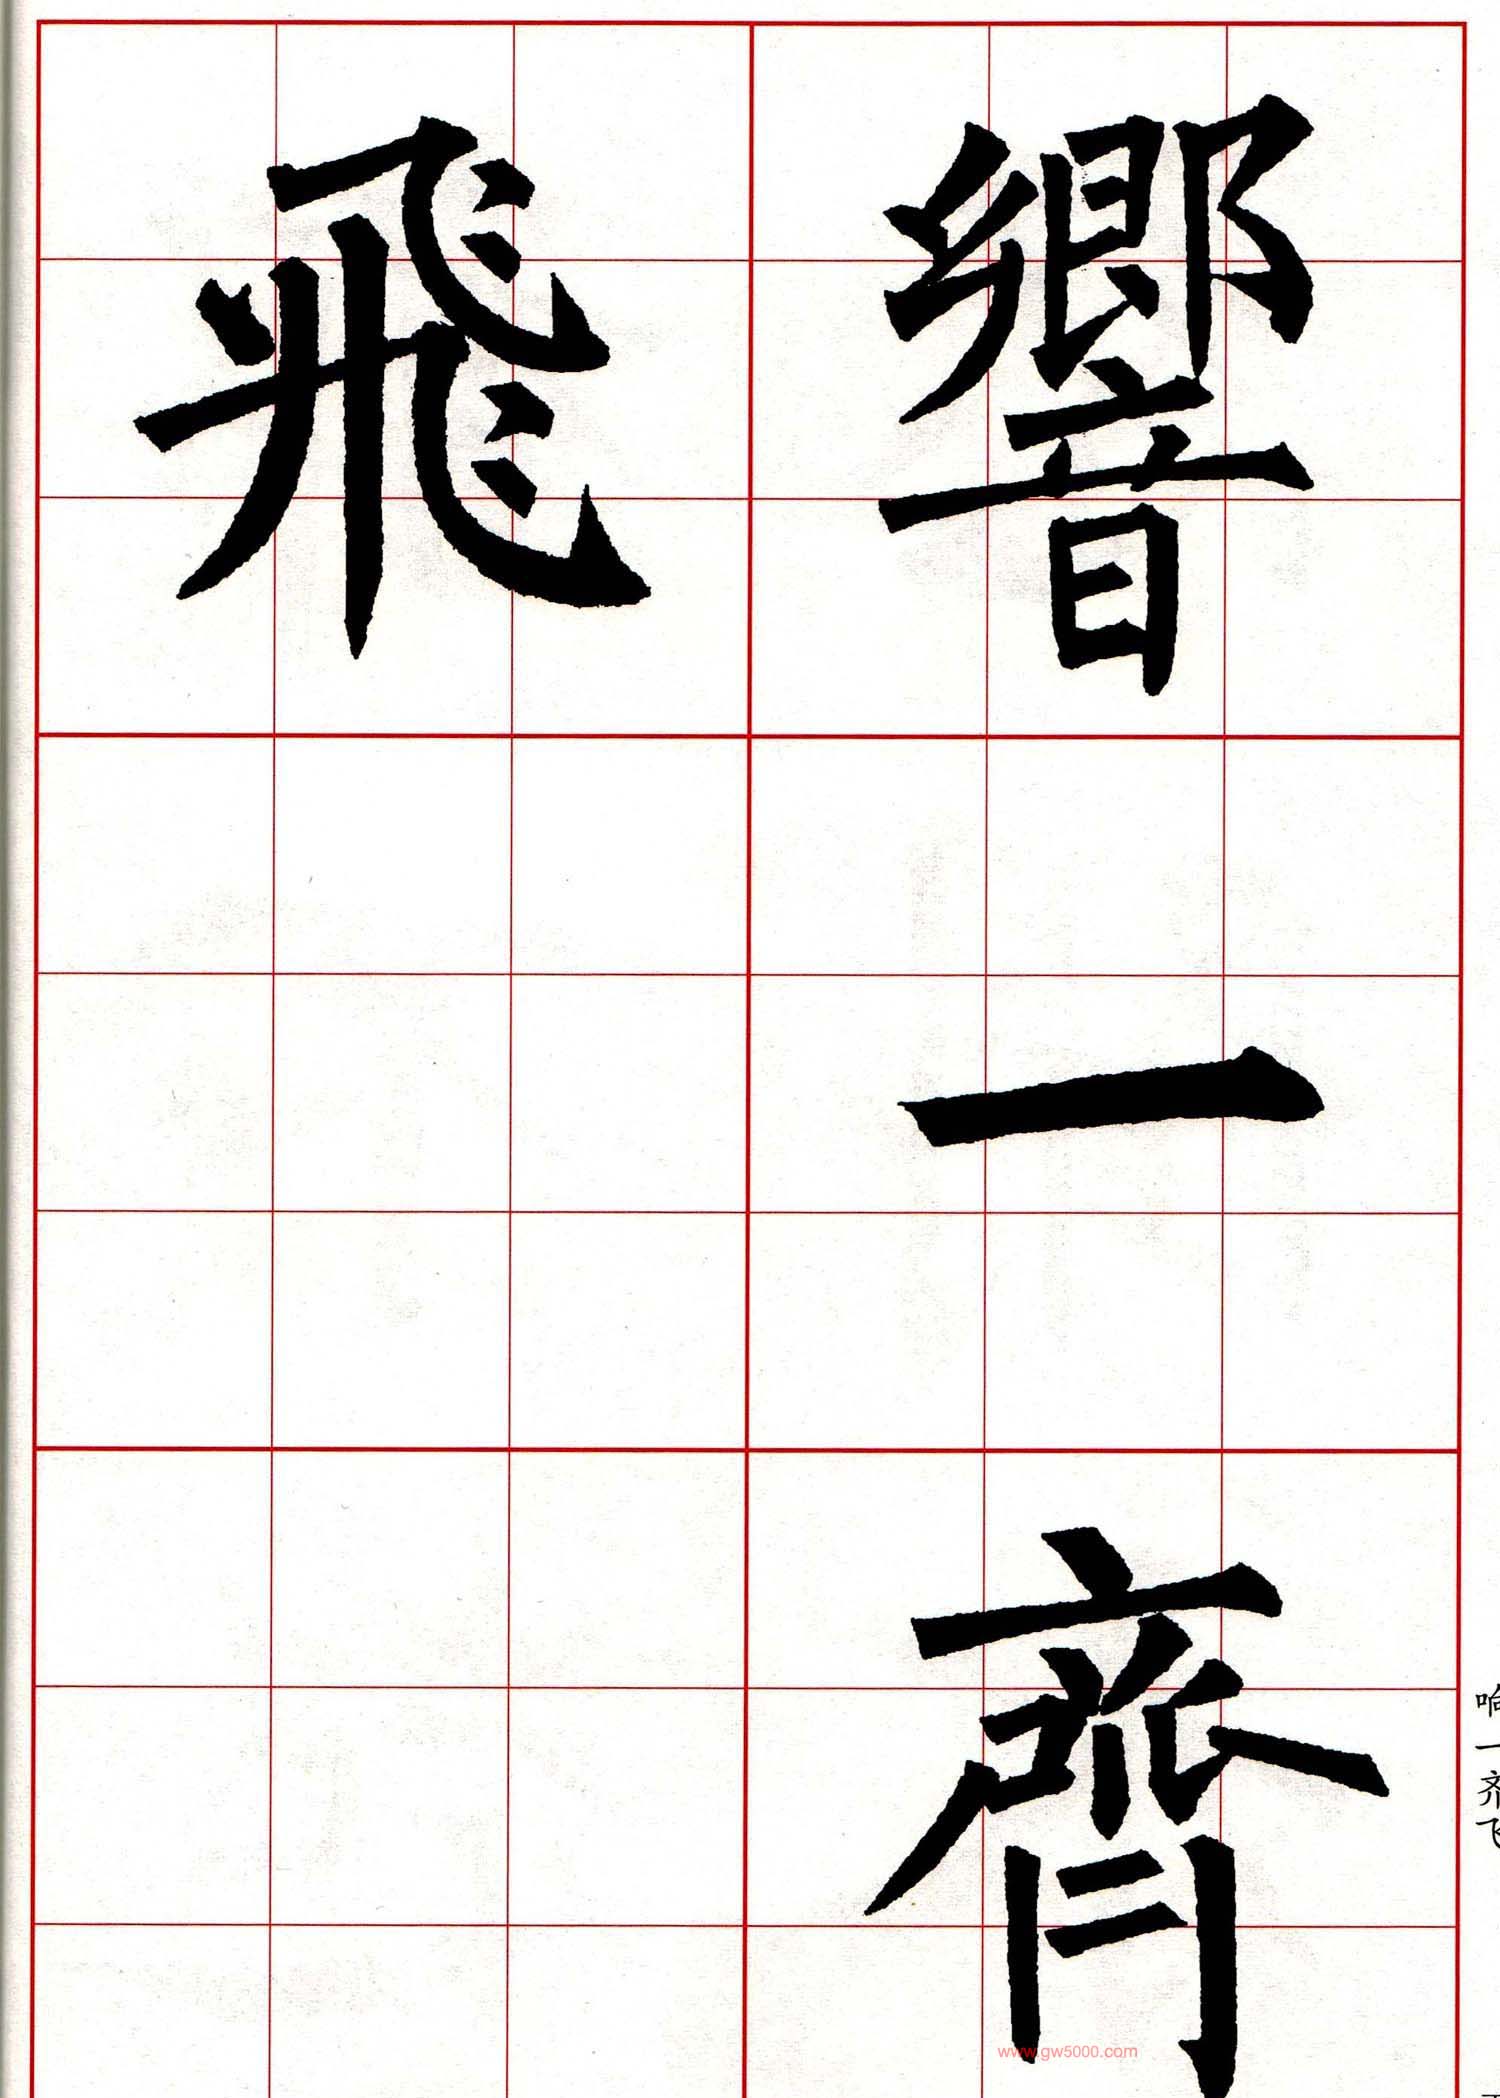 響一齊
飛
响一齐飞
www.gw5000.com